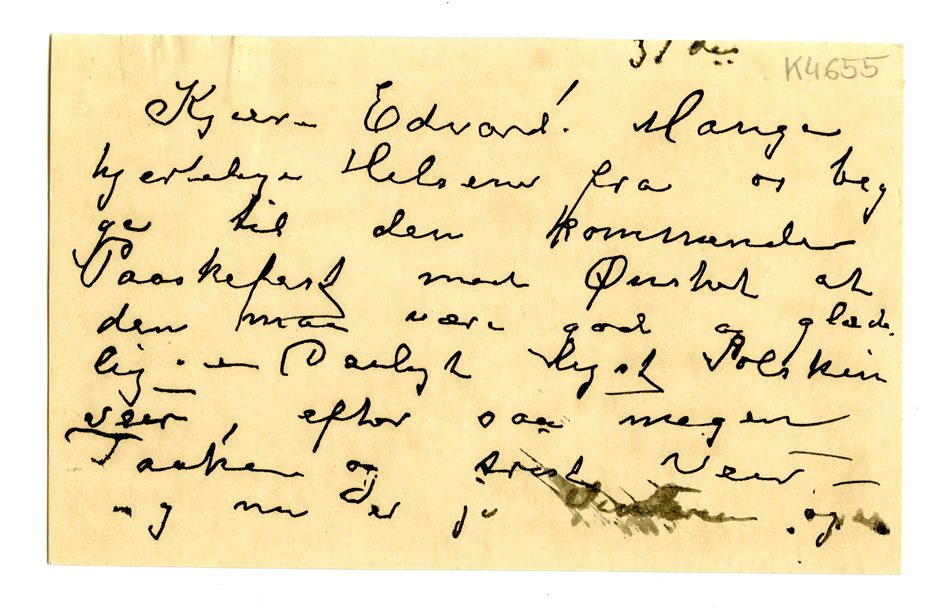 31 des
K4655
Kjære Edvard! Mange
hjertelige Helsener fra os beg
ge til den kommende
Paaskefest med Ønsket at
den maa være god og glæde
lig. – Deiligt lyst Solskin
veir, efter saa megen
Taaken og trist Veir –
og nu er jo Vinteren og